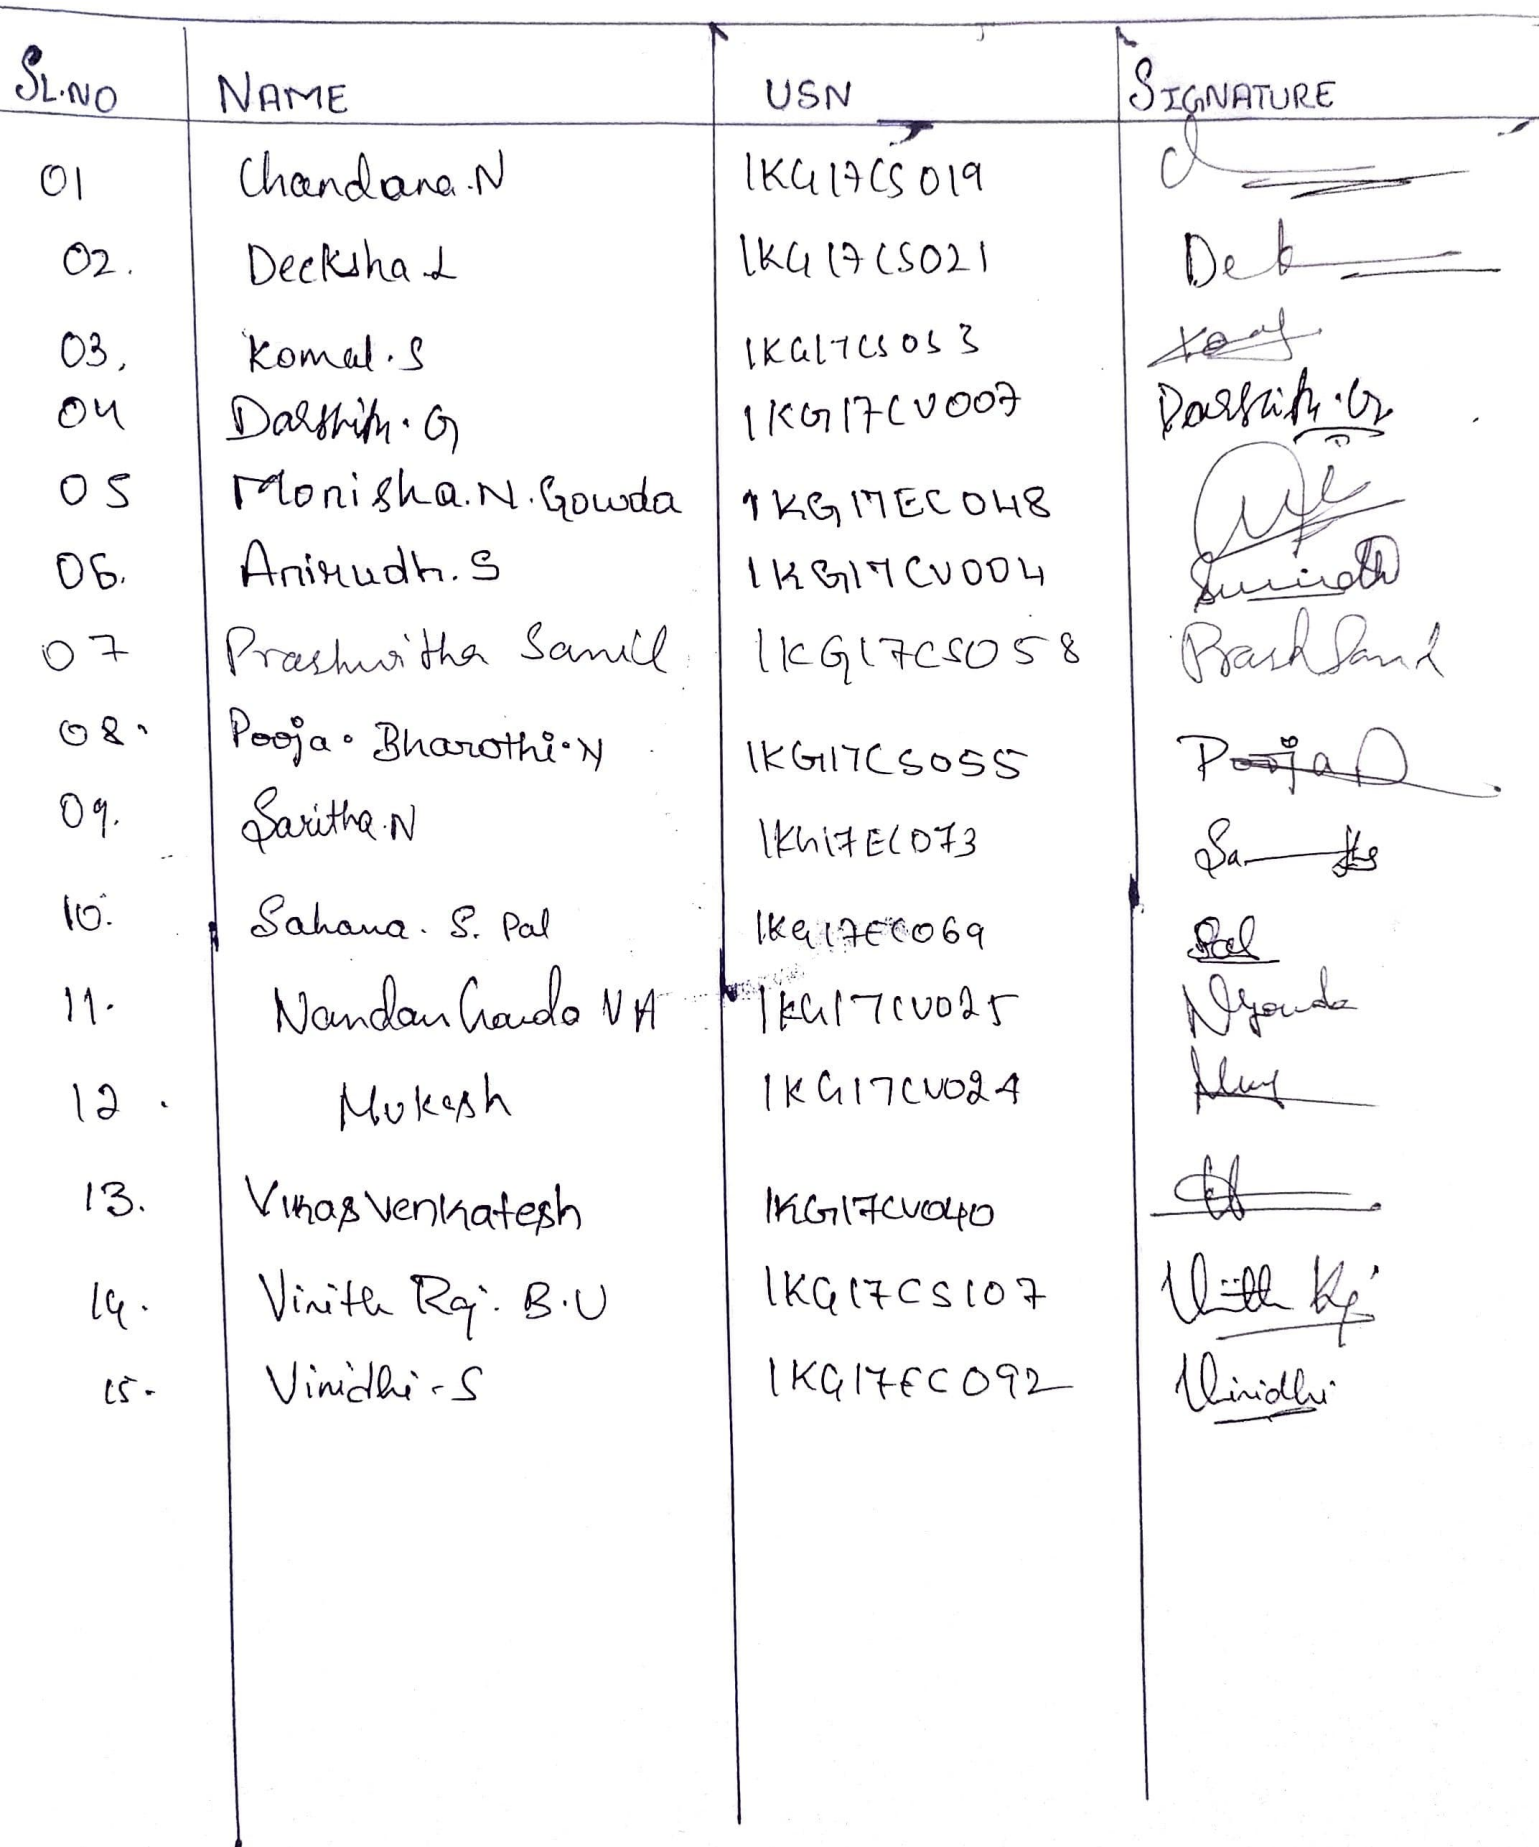 SL.NO NAME USN SIGNATURE
01 Chandana.N 1KG17CS019
02. Deeksha L 1KG17CS021 Dek
03. Komal.S 1KG17CS053
04 Darshith.G 1KG17CV007 Darshith.G
05 Monisha.N.Gowda 1KG17EC048
06. Anirudh.S 1KG17CV004 Anirudh
07 Prashwitha Sanil 1KG17CS058 Prash Sanil
08. Pooja. Bharathi.N 1KG17CS055 Pooja
09. Saritha.N 1KG17EC073
10. Sahana. S. Pal 1KG17EC069 Pal
11. Nandan Gowda N A 1KG17CV025 NGowda
12. Mukesh 1KG17CV024
13. Vikas Venkatesh 1KG17CV040
14. Vinith Raj. B.U 1KG17CS107 Vinith Raj
15. Vinidhi.S 1KG17EC092 Vinidhi